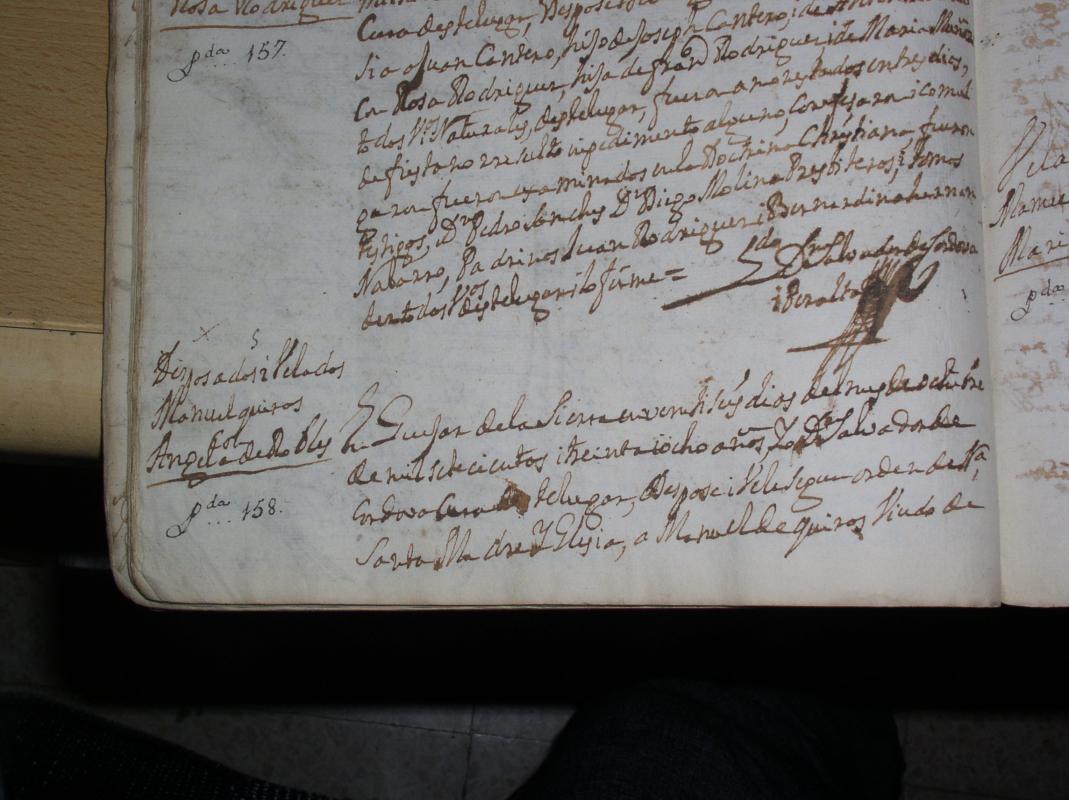 Rosa Rodriguez
pda 157.
Cura deste lugar, Despose i
sia a Juan Cantero, hijo de Joseph Cantero i de
con Rosa Rodriguez, hija de fran.co Rodriguez i de Maria Muñoz
todos V.os Naturales, deste lugar, fueron amonestados en tres dias,
de fiesta no rresulto inpedimento alguno, Confesaron i comul
garon fueron examinados en la Doctrina Christiana fueron
testigos, D.n Pedro Sanches D.n Diego Molina Presbiteros, i tomas
Nabarro, Padrinos Juan Rodriguez i Bernardina hernan
dez todos V.os deste lugar i lo firme =
D.r Salvador de Cordova
i Peralta
Desposados i Velados
Manuel quiros
Angela de Robles
pda 158.
En Guejar de la Sierra en veinti seis dias del mes de octubre
de mil setecientos i treinta i ocho años, Yo D.r Salvador de
Cordova Cura deste lugar, Despose i Vele segun orden de N.a
Santa Madre Yglesia, a Manuel de quiros Viudo de
Vela
Manue
Mari
pda